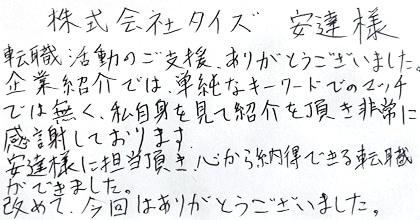 株式会社タイズ 安達様
転職活動のご支援、ありがとうございました。
企業紹介では、単純なキーワードでのマッチ
では無く、私自身を見て紹介を頂き非常に
感謝しております
安達様に担当頂き、心から納得できる転職
ができました。
改めて、今回はありがとうございました。